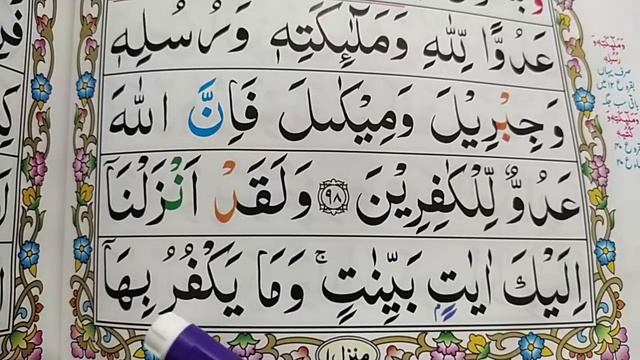 عَدُوًّا لِّلّٰهِ وَمَلٰٓئِكَتِهٖ وَرُسُلِهٖ
وَجِبْرِيْلَ وَمِيْكٰىلَ فَاِنَّ اللّٰهَ
عَدُوٌّ لِّلْكٰفِرِيْنَ ﴿۹۸﴾ وَلَقَدْ اَنْزَلْنَاۤ
اِلَيْكَ اٰيٰتٍۭ بَيِّنٰتٍ ۚ وَمَا يَكْفُرُ بِهَاۤ
منزل ۱